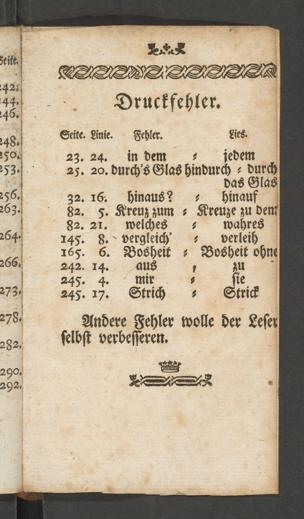 Seite.
242.
244.
246.
248.
250.
253.
256.
263.
264.
266.
273.
278.
282.
290.
292.
Druckfehler.
Seite. Linie. Fehler. Lies.
23. 24. in dem = jedem
25. 20. durch's Glas hindurch = durch
das Glas
32. 16. hinaus? = hinauf
82. 5. Kreuz zum = Kreuze zu dem
82. 21. welches = wahres
145. 8. vergleich' = verleih
165. 6. Bosheit = Bosheit ohne
242. 14. aus , zu
245. 4. mir = sie
245. 17. Strich = Strick
Andere Fehler wolle der Leser
selbst verbesseren.